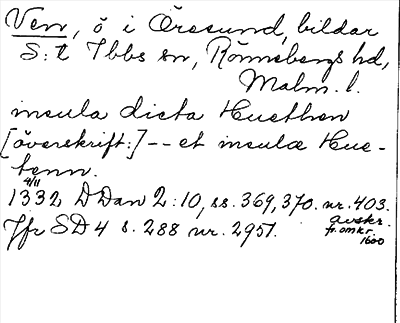 Ven, ö i Öresund, bildar
S:t Ibbs sn, Rönnebergs hd,
Malm. l.
insula dicta Huethen
[överskrift:] -- et insula Hue-
tenn.
4/11
1332 DDan 2:10, ss. 369, 370. nr. 403.
avskr.
fr. omkr.
1600
Jfr SD 4 s. 288 nr. 2951.